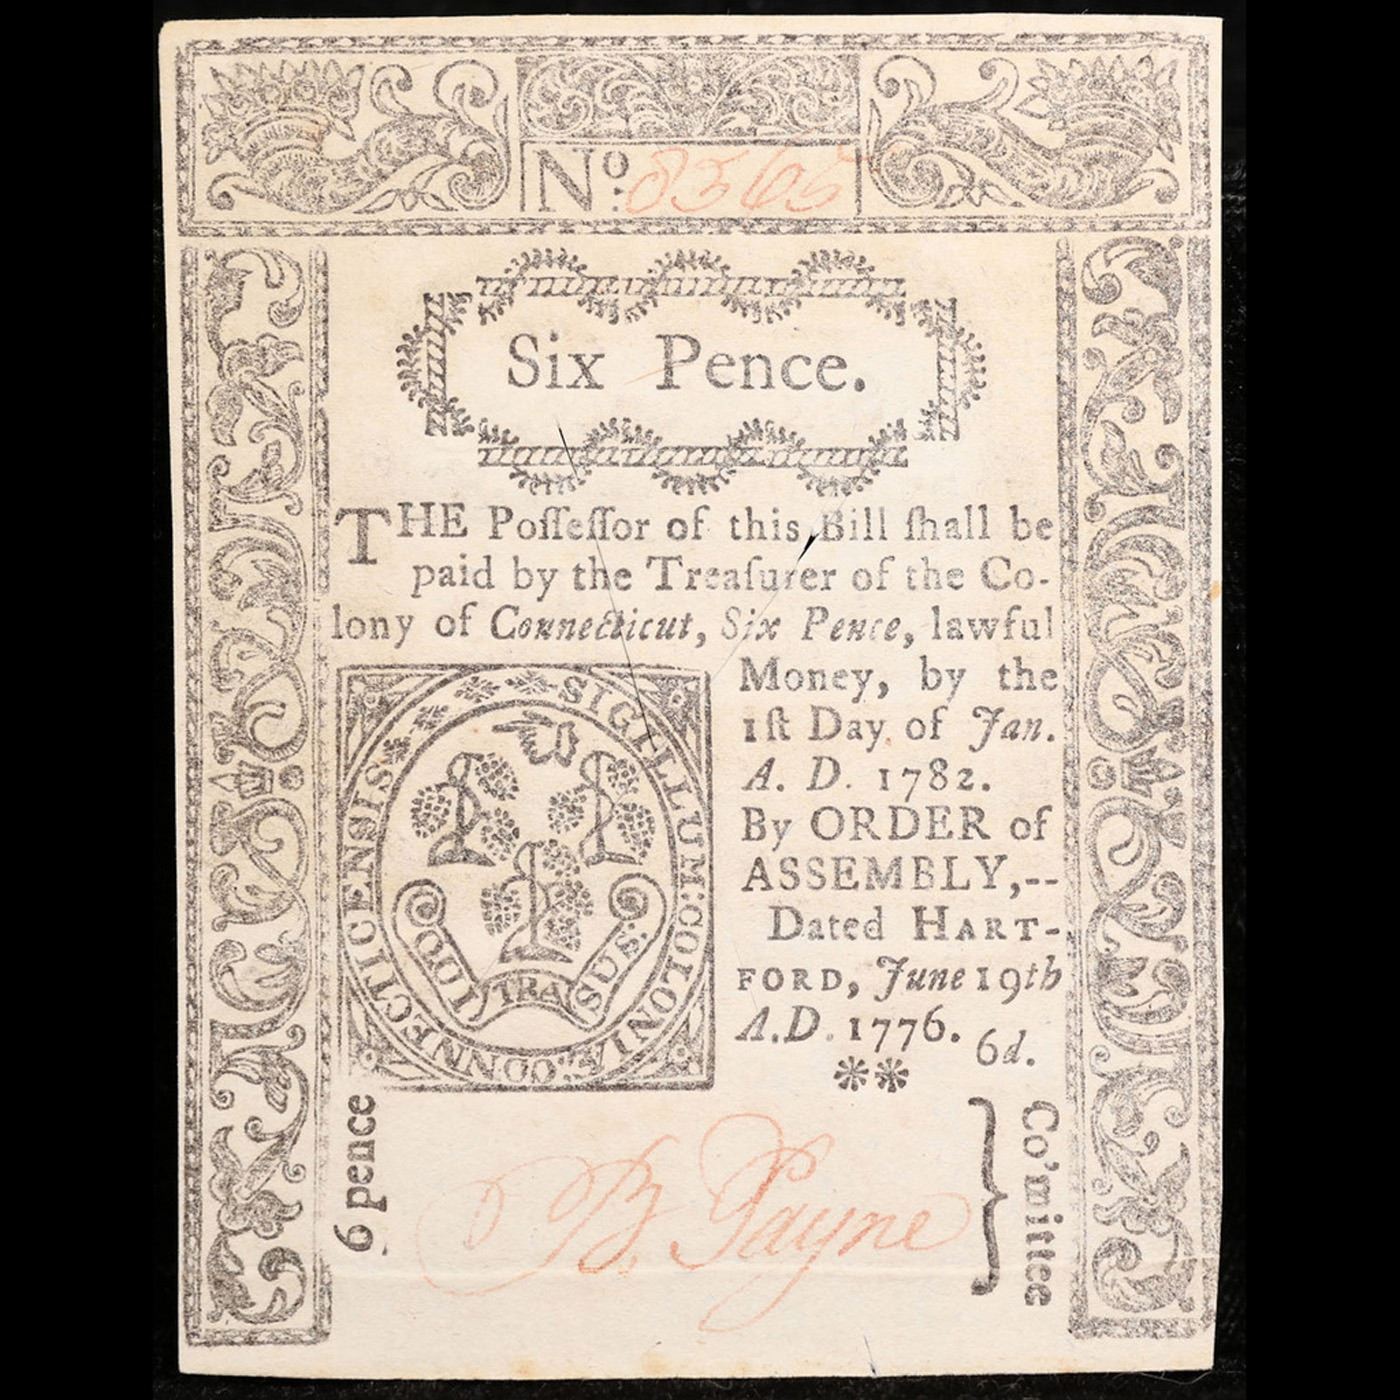 No: 8365
Six Pence.
THE Poſſeſſor of this Bill ſhall be
paid by the Treaſurer of the Co-
lony of Connecticut, Six Pence, lawful
Money, by the
1ſt Day of Jan.
A. D. 1782.
By ORDER of
ASSEMBLY,--
Dated HART-
FORD, June 19th
A.D. 1776. 6d.
SIGILLUM: COLONIÆ: CONNECTICENSIS
QUI TRA SUS:
6 pence
B. Payne
Co'mittee